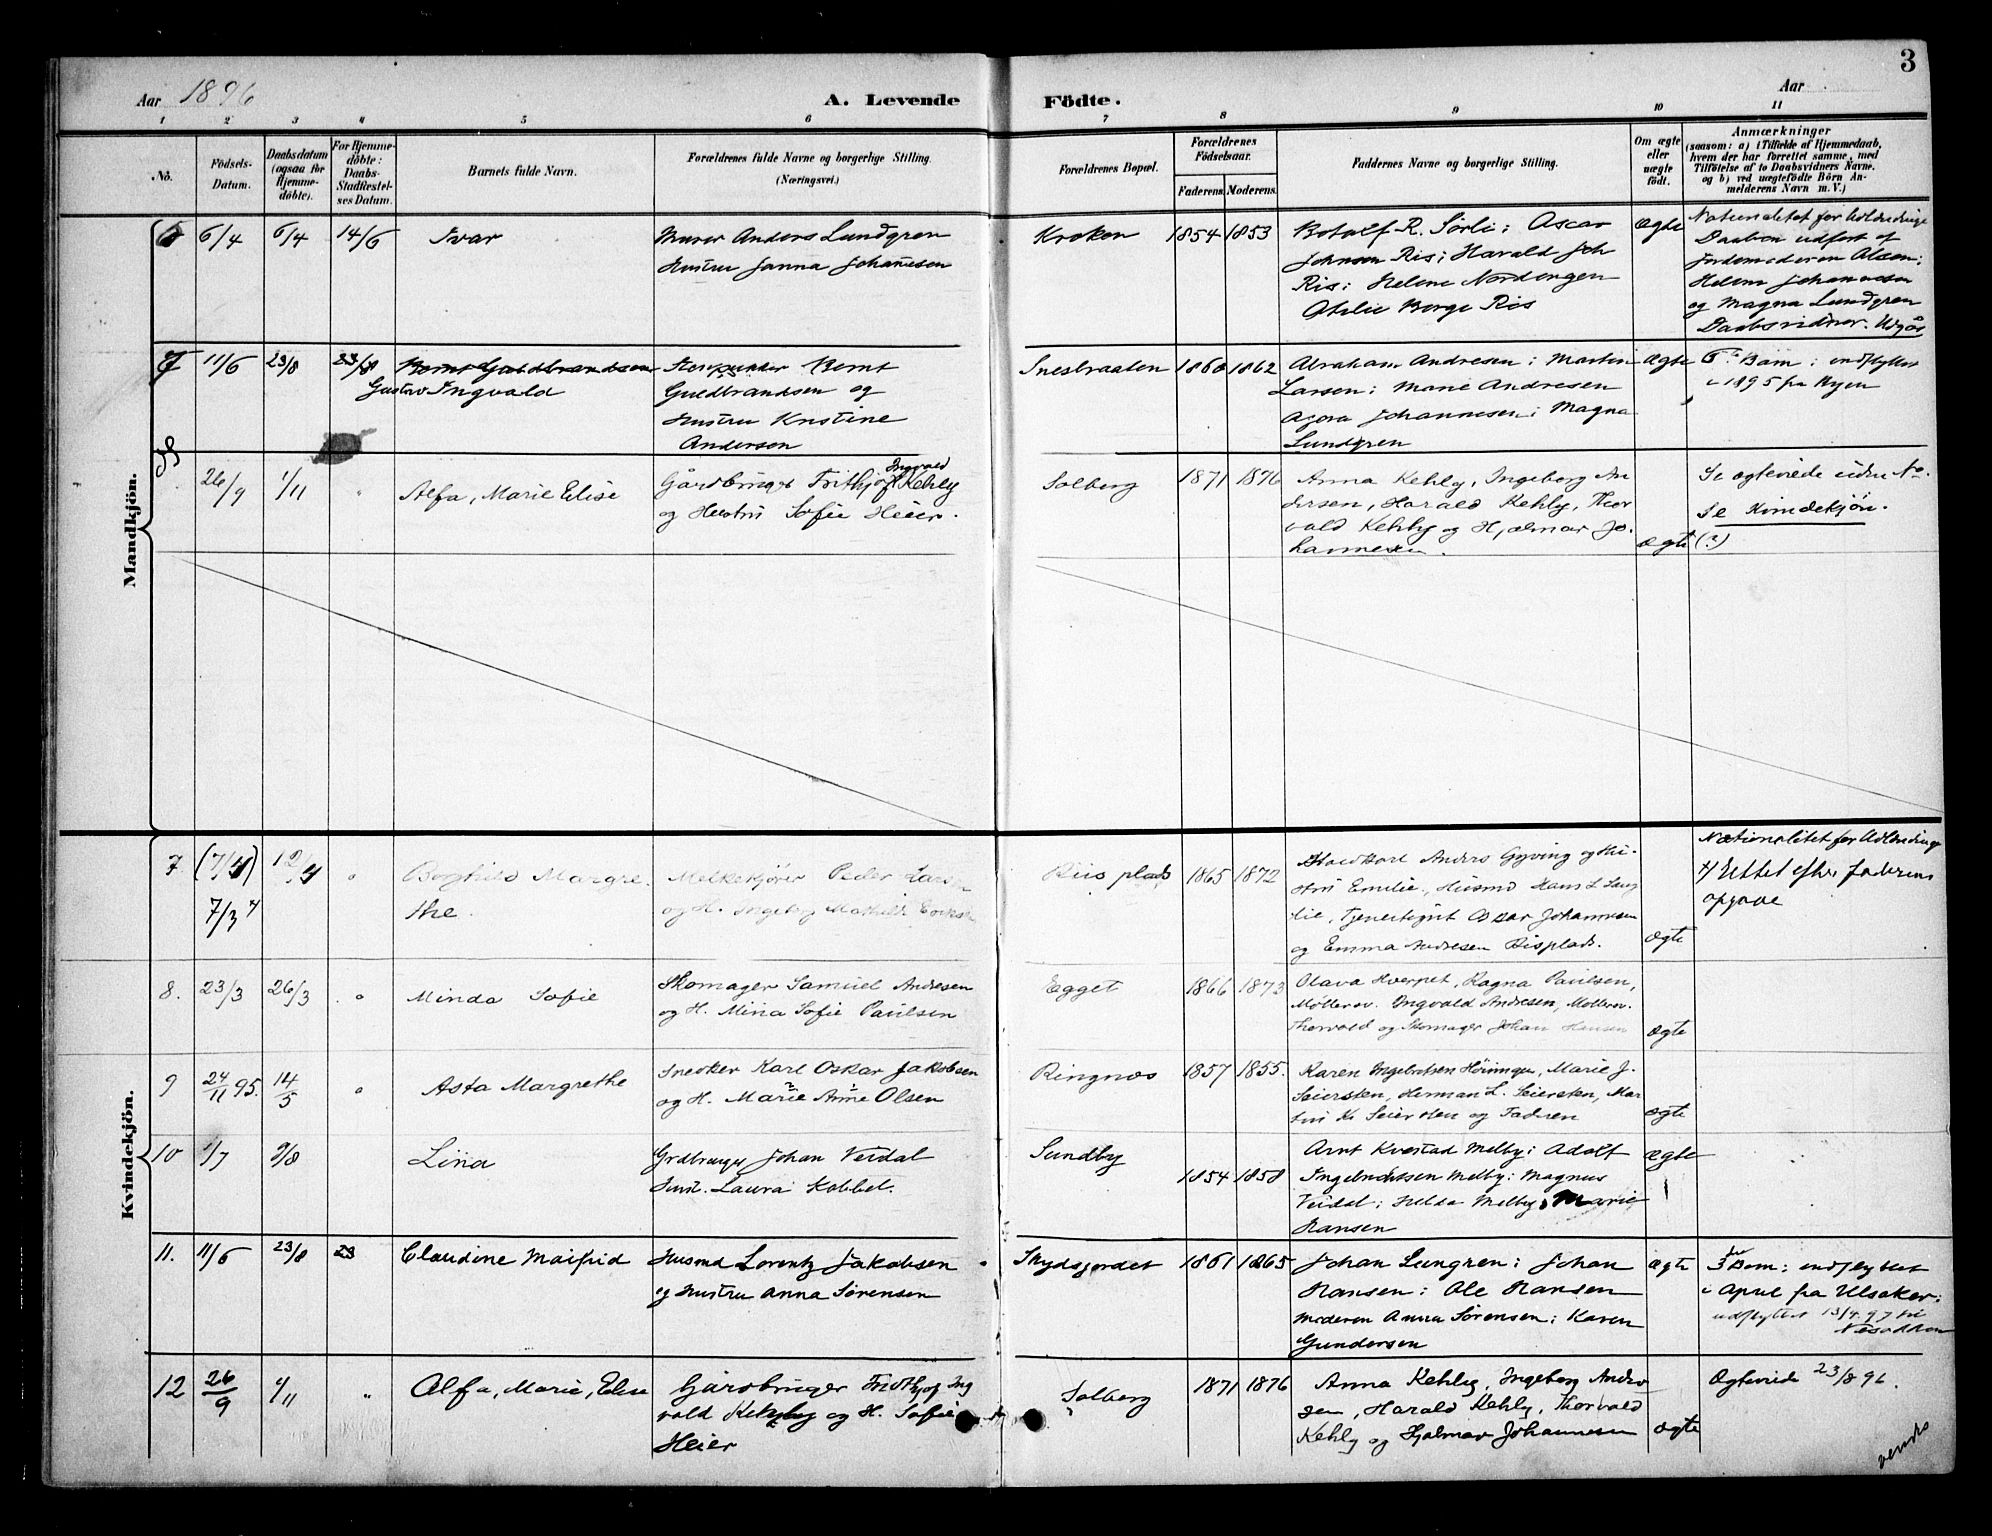 3
Aar 1896
A. Levende
Födte.
Aar
1 2 3 4 5 6 7 8 9 10 11
No.
Födsels-
Datum.
Daabsdatum
(ogsaa for
Hjemme-
döbte).
For Hjemme-
döbte:
Daabs-
Stadfæstel-
ses Datum.
Barnets fulde Navn.
Forældrenes fulde Navne og borgerlige Stilling.
(Næringsvei.)
Forældrenes Bopæl.
Forældrenes
Födselsaar.
Faderens. Moderens.
Faddernes Navne og borgerlige Stilling.
Om ægte
eller
uægte
født.
Anmærkninger
(saasom: a) i Tilfælde af Hjemmedaab,
hvem der har forrettet samme, med
Tilföielse af to Daabsvidners Navne.
og b) ved uægtefödte Börn An-
melderens Navn m. V.)
Mandkjön.
6/4 6/4 14/6 Ivar
Murer Anders Lundgren
Hustru Janna Johannesen
Kroken 1854 1853
Botolf R. Sörli; Oscar
Johnsen Ris; Harald Joh
Ris; Helene Nordengen
Berge Ris
ægte
Nationalitet for Udlændinge
Daaben udført af
Jordemoderen Olsen;
Helene Johannesen
og Magna Lundgren
Daabsvidner.
7 11/6 23/8 23/8 Bernt Guldbrandsen
Gustav Ingvald
Bernt
Guldbrandsen og
Hustru Kristine
Andersen
Snesbraaten 1860 1862
Abraham Andresen; Martin
Larsen; Marie Andresen
Agora Johannesen; Magna
Lundgren
ægte
6te Barn; indflyttet
i 1895 fra Byen
26/9 1/11 " Alfa, Marie Elise
Gårdbruger Frithjof Ingvald Kehly
og Hustru Sofie Heier.
Solberg 1871 1876
Anna Kehly, Ingeborg An
dersen, Harald Kehly, Thor
vald Kehly og Hjalmar Jo.
hannesen.
ægte
Se ægteviede under No.
Se Kvindekjön.
(?)
Kvindekjön.
7 (7/4) 12/4 " Borghild Margre.
7/3 the.
Melkekjörer Peder Larsen
og H. Ingeborg Mathilde
Riis plads 1865 1872
Anders Gyving og Hu-
stru Emilie, Husmd Hans L.
lie, Tjenestegut Oscar Johannesen
og Emma Andresen Risplads.
ægte
Nationalitet for Udlændinge
Rettet efter Faderens
opgave
8. 23/3 26/3 " Minda Sofie
Skomager Samuel Andresen
og H. Mina Sofie Paulsen
Egget 1866 1873
Olava Kverpet, Ragna Paulsen,
Möllerov. Ingvald Andresen, Möllerov.
Thorvald og Skomager Johan Hansen
ægte
9 24/11 95. 14/5 " Asta Margrethe
Snedker Karl Oskar Jakobsen
og H. Marie Anne Olsen
Ringnes 1857 1855.
Karen Ingebretsen, Marie J.
Seiersten, Herman L. Seiersten, Mar
og Fadren
ægte
10 1/7 9/8 Lina
Grdbruger Johan Veidal
Hust. Laura Kobbel.
Sundby 1854 1858
Arnt Kvestad Melby; Adolf
Ingebrechtsen Melby; Magnus
Veidal; Hilda Melby; Marie
Hansen
ægte
11. 11/6 23/8 23 Claudine Maifrid
Husmd Lorentz Jakobsen
og Hustru Anna Sørensen
Skydsjordet 1861 1865
Johan Lungren; Johan
Hansen; Ole Hansen
Moderen Anna Sørensen; Karen
Gundersen
ægte
3die Barn; indflyttet
i April fra Ulsaker;
udflyttet 13/4 97 til
Nesodden
12 26/9 1/11 " Alfa, Marie, Elise
Gårdbruger Fridthjof Ing
vald Kehly og H. Sofie
Heier
Solberg 1871 1876
Anna Kehly, Ingeborg Andre
sen, Harald Kehly, Thorvald
Kehly og Hjalmar Johannesen
ægte
Ægteviede 23/8 96.
vends